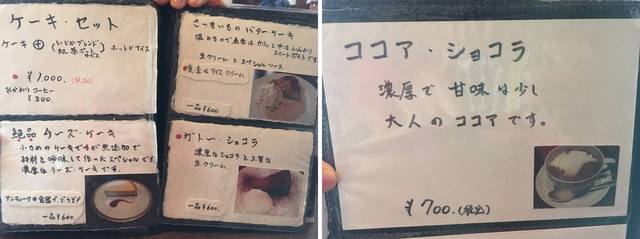 ケーキ・セット
ケーキ ⊕ (いなかブレンド
紅茶ポット
サービス) ホットorアイス
¥1,000.(税込)
おかわりコーヒー
¥300.
絶品 チーズ・ケーキ
小さめのケーキですが無添加で
材料を吟味して作ったスペシャルです。
濃厚なチーズ・ケーキです。
アンティークの食器で、どうぞ♪
一品 ¥600.
さつまいもの バターケーキ
温めるので表面は カリッと 中は ふんわり
スイートポテトです。
生クリーム と スペシャルソース
一品 ¥600
ガトー・ショコラ
濃厚なショコラと上質な
生クリーム。
一品 ¥600.
ココア・ショコラ
濃厚で 甘味は少し
大人の ココア です。
¥700.(税込)